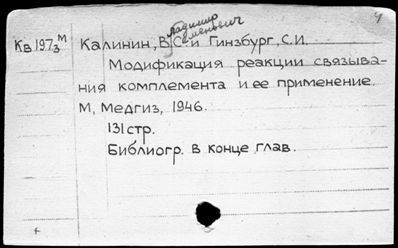 Владимир
Семенович
4
Кв 197/3 м Калинин, В.С. и Гинзбург, С.И.
Модификация реакции связыва-
ния комплемента и ее применение.
М, Медгиз, 1946.
131 стр.
Библиогр. в конце глав.